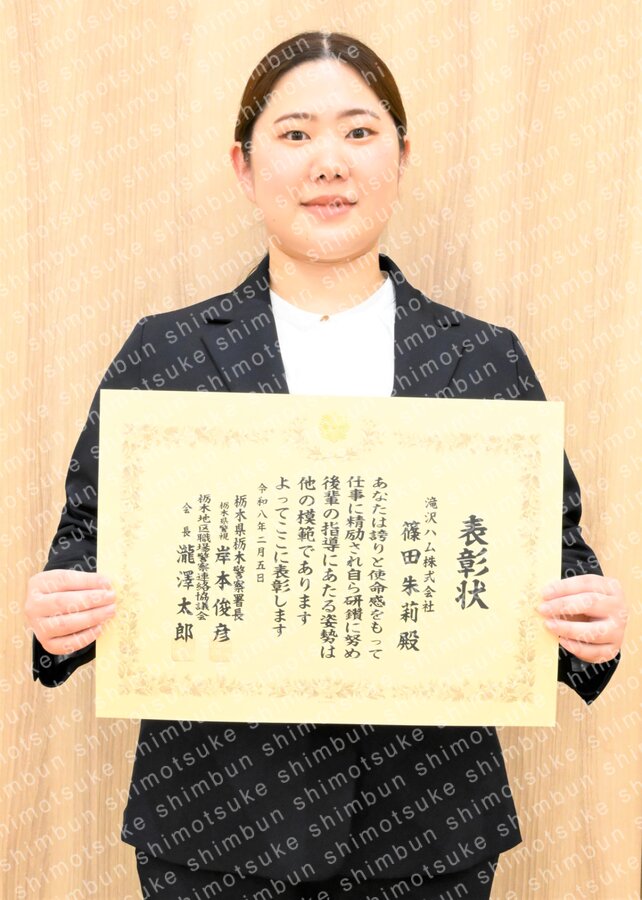 表彰状
滝沢ハム株式会社
篠田朱莉殿
あなたは誇りと使命感をもって
仕事に精励され自ら研鑽に努め
後輩の指導にあたる姿勢は
他の模範であります
よってここに表彰します
令和八年二月五日
栃木県栃木警察署長
栃木県警視 岸本俊彦
栃木地区職場警察連絡協議会
会長 瀧澤太郎
shimotsuke shimbun